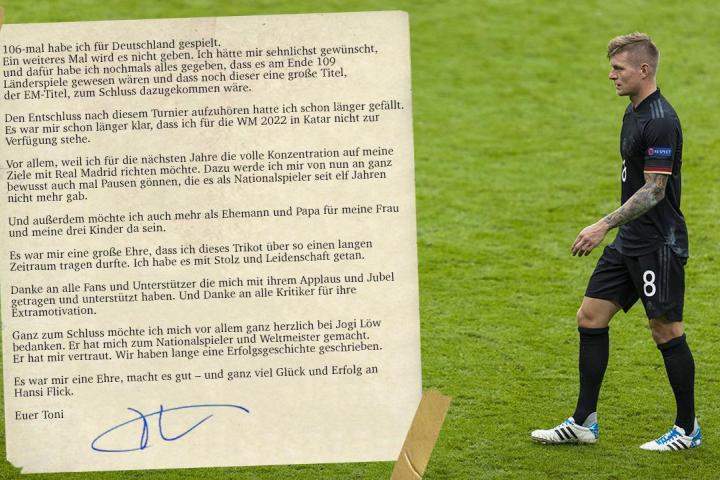 106-mal habe ich für Deutschland gespielt.
Ein weiteres Mal wird es nicht geben. Ich hätte mir sehnlichst gewünscht,
und dafür habe ich nochmals alles gegeben, dass es am Ende 109
Länderspiele gewesen wären und dass noch dieser eine große Titel,
der EM-Titel, zum Schluss dazugekommen wäre.
Den Entschluss nach diesem Turnier aufzuhören hatte ich schon länger gefällt.
Es war mir schon länger klar, dass ich für die WM 2022 in Katar nicht zur
Verfügung stehe.
Vor allem, weil ich für die nächsten Jahre die volle Konzentration auf meine
Ziele mit Real Madrid richten möchte. Dazu werde ich mir von nun an ganz
bewusst auch mal Pausen gönnen, die es als Nationalspieler seit elf Jahren
nicht mehr gab.
Und außerdem möchte ich auch mehr als Ehemann und Papa für meine Frau
und meine drei Kinder da sein.
Es war mir eine große Ehre, dass ich dieses Trikot über so einen langen
Zeitraum tragen durfte. Ich habe es mit Stolz und Leidenschaft getan.
Danke an alle Fans und Unterstützer die mich mit ihrem Applaus und Jubel
getragen und unterstützt haben. Und Danke an alle Kritiker für ihre
Extramotivation.
Ganz zum Schluss möchte ich mich vor allem ganz herzlich bei Jogi Löw
bedanken. Er hat mich zum Nationalspieler und Weltmeister gemacht.
Er hat mir vertraut. Wir haben lange eine Erfolgsgeschichte geschrieben.
Es war mir eine Ehre, macht es gut – und ganz viel Glück und Erfolg an
Hansi Flick.
Euer Toni
RESPECT
8
8